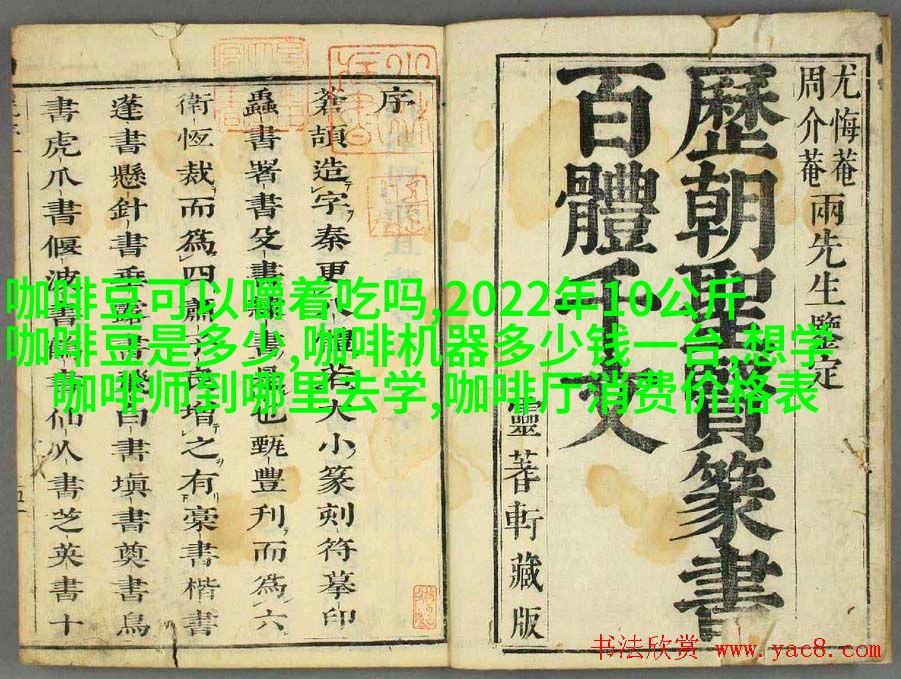 咖啡豆可以嚼着吃吗,2022年10公斤
咖啡豆是多少,咖啡机器多少钱一台,想学
咖啡师到哪里去学,咖啡厅消费价格表
尤悔菴
周介菴
兩先生鑒定
歷朝聖賢篆書
百體千文
靈蓍軒藏版
序
蒼頡造字秦更八體若大小篆刻符摹印
蟲書署書殳書隸書是也甄豐刋而為六
衛恆裁而為四蕭子良增之有槀書楷書
蓬書懸針書垂露書飛白書塡書奠書鳥
書虎爪書偃波書鶴書仙人書芝英書十
书法欣赏 www.yac8.com